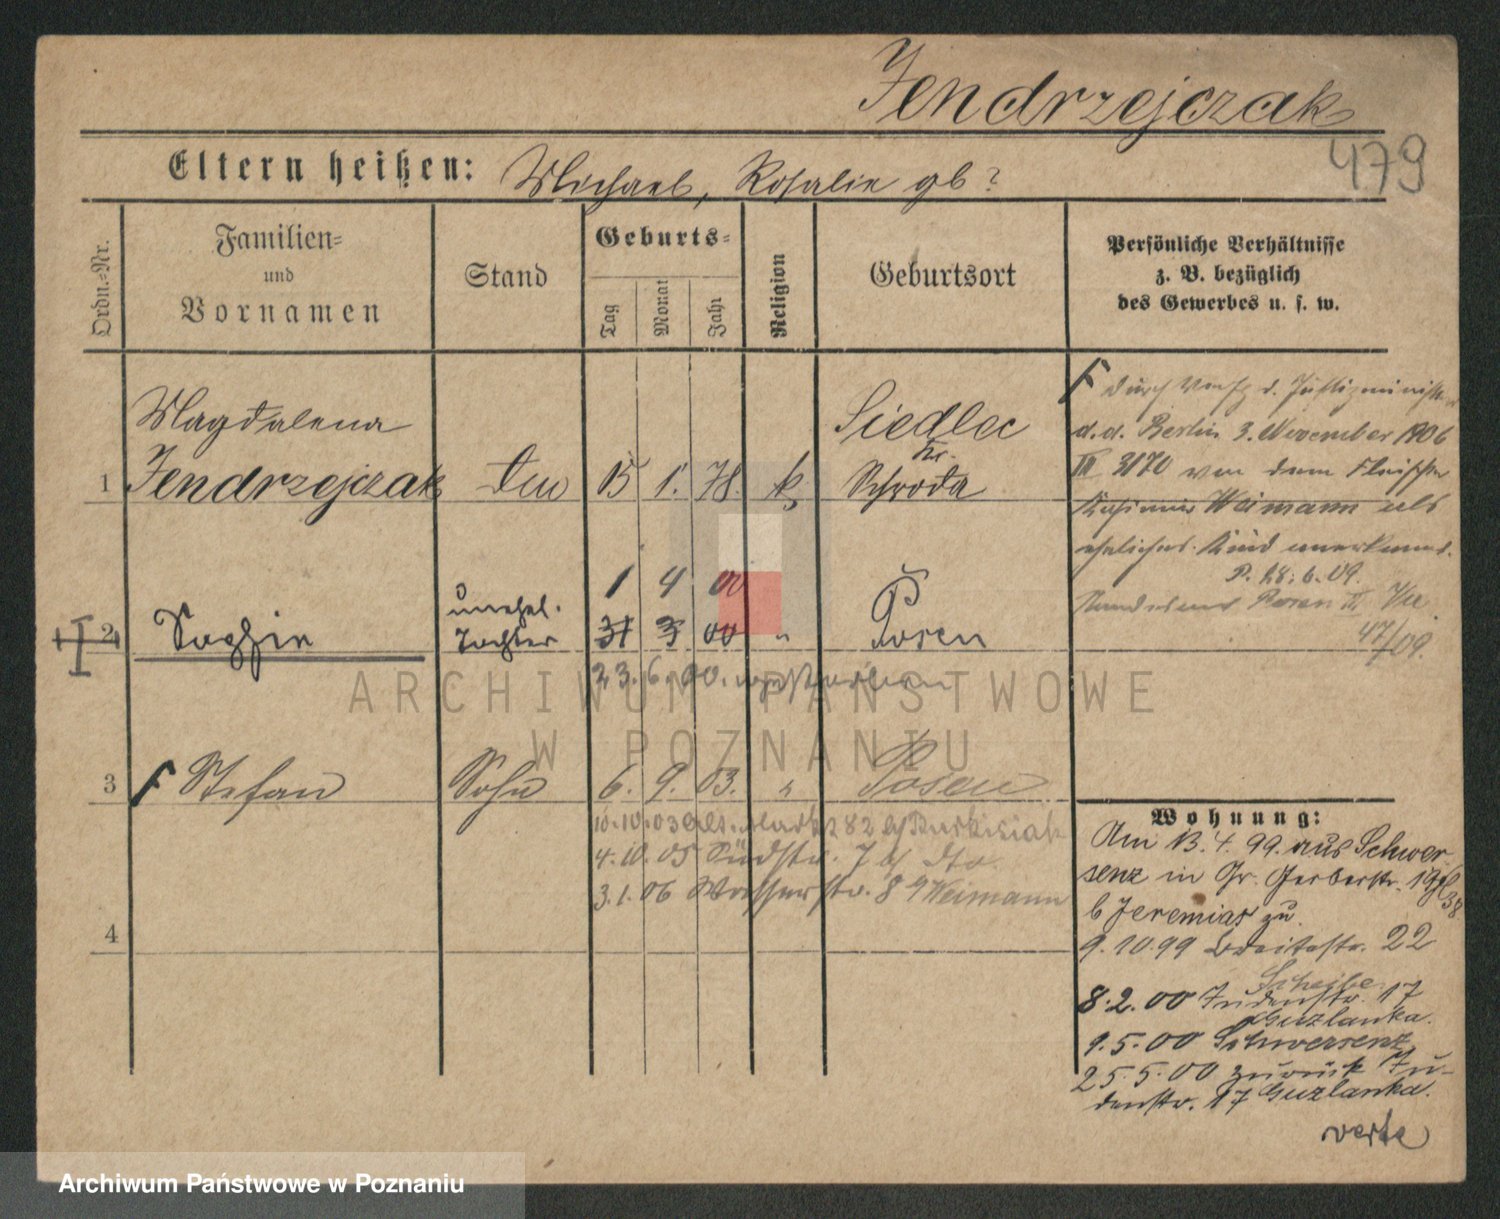 Jendrzejczak
479
Eltern heißen: Michael, Rosalie gb?
Ordn.-Nr.
Familien-
und
Vornamen
Stand
Geburts-
Tag
Monat
Jahr
Religion
Geburtsort
Persönliche Verhältnisse
z. B. bezüglich
des Gewerbes u. s. w.
Magdalena
1 Jendrzejczak 15 1. 78. k
Siedlec
Kr.
Schroda
F durch Verfg d. Justizministers
d.d. Berlin 3. November 1906
III 3170 von dem Fleischer
Kasimir Weimann als
eheliches Kind anerkannt.
P. 28. 6. 09.
Standesamt Posen
47/09.
1 4 00
unehel.
2 Sophie Tochter 31 3 00 " Posen
23. 6. 00. verstorben
3 F Stefan Sohn 6. 9. 03. " Posen
10.10.03 Alt. Markt 82 b/
4.10.05 Südstr. 7 b/ dto.
3.1.06 Wasserstr. 8/9 Weimann
4
Wohnung:
Am 13.4.99. aus Schwer-
senz in Gr. Gerberstr.
b/Jeremias zu.
9.10.99 Breitestr. 22
Scheibe
8.2.00 Judenstr. 17
Guzlanka.
9.5.00 Schwersenz
25.5.00 zurück Ju-
denstr. 17 Guzlanka.
verte
ARCHIWUM PAŃSTWOWE
W POZNANIU
Archiwum Państwowe w Poznaniu